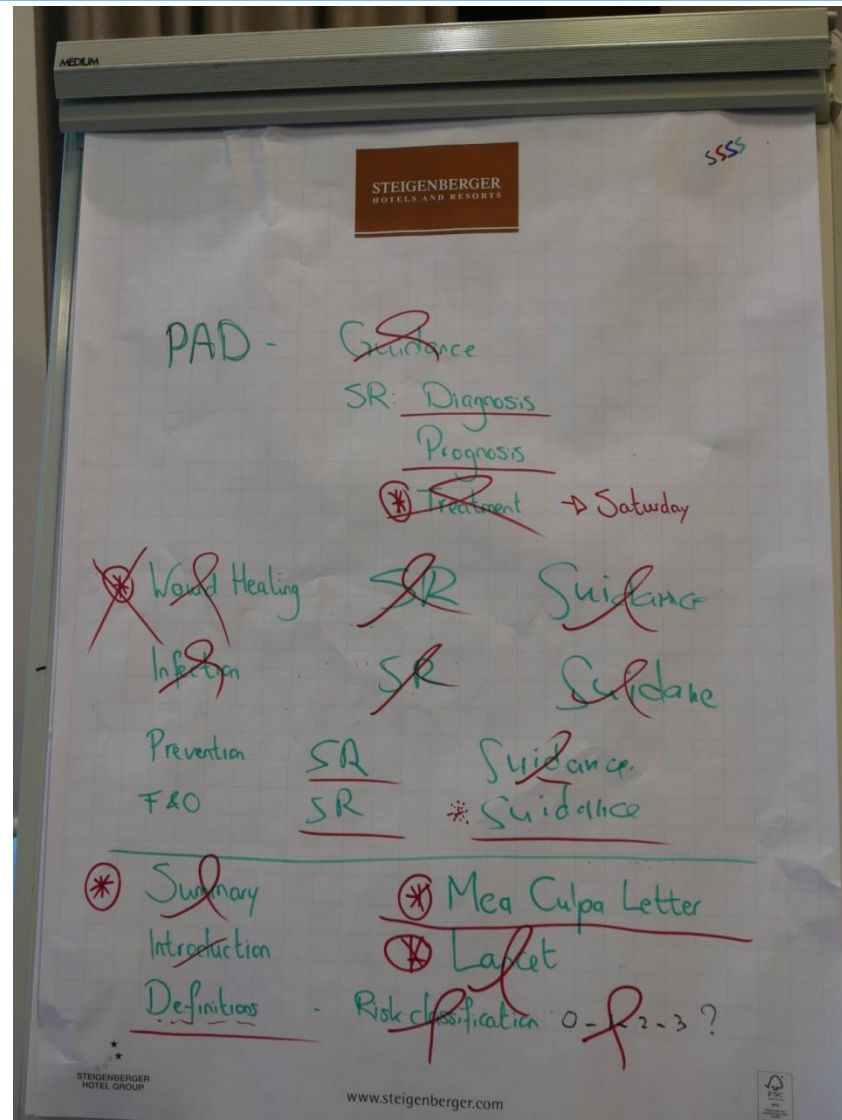 MEDIUM
SSSS
STEIGENBERGER
HOTELS AND RESORTS
PAD - Guidance
SR: Diagnosis
Prognosis
* Treatment → Saturday
* Wound Healing SR Guidance
Infection SR Guidane
Prevention SR Guidance.
F&O SR * Guidance
* Summary * Mea Culpa Letter
Introduction * Lancet
Definitions - Risk classification 0-1-2-3?
STEIGENBERGER
HOTEL GROUP
www.steigenberger.com
FSC